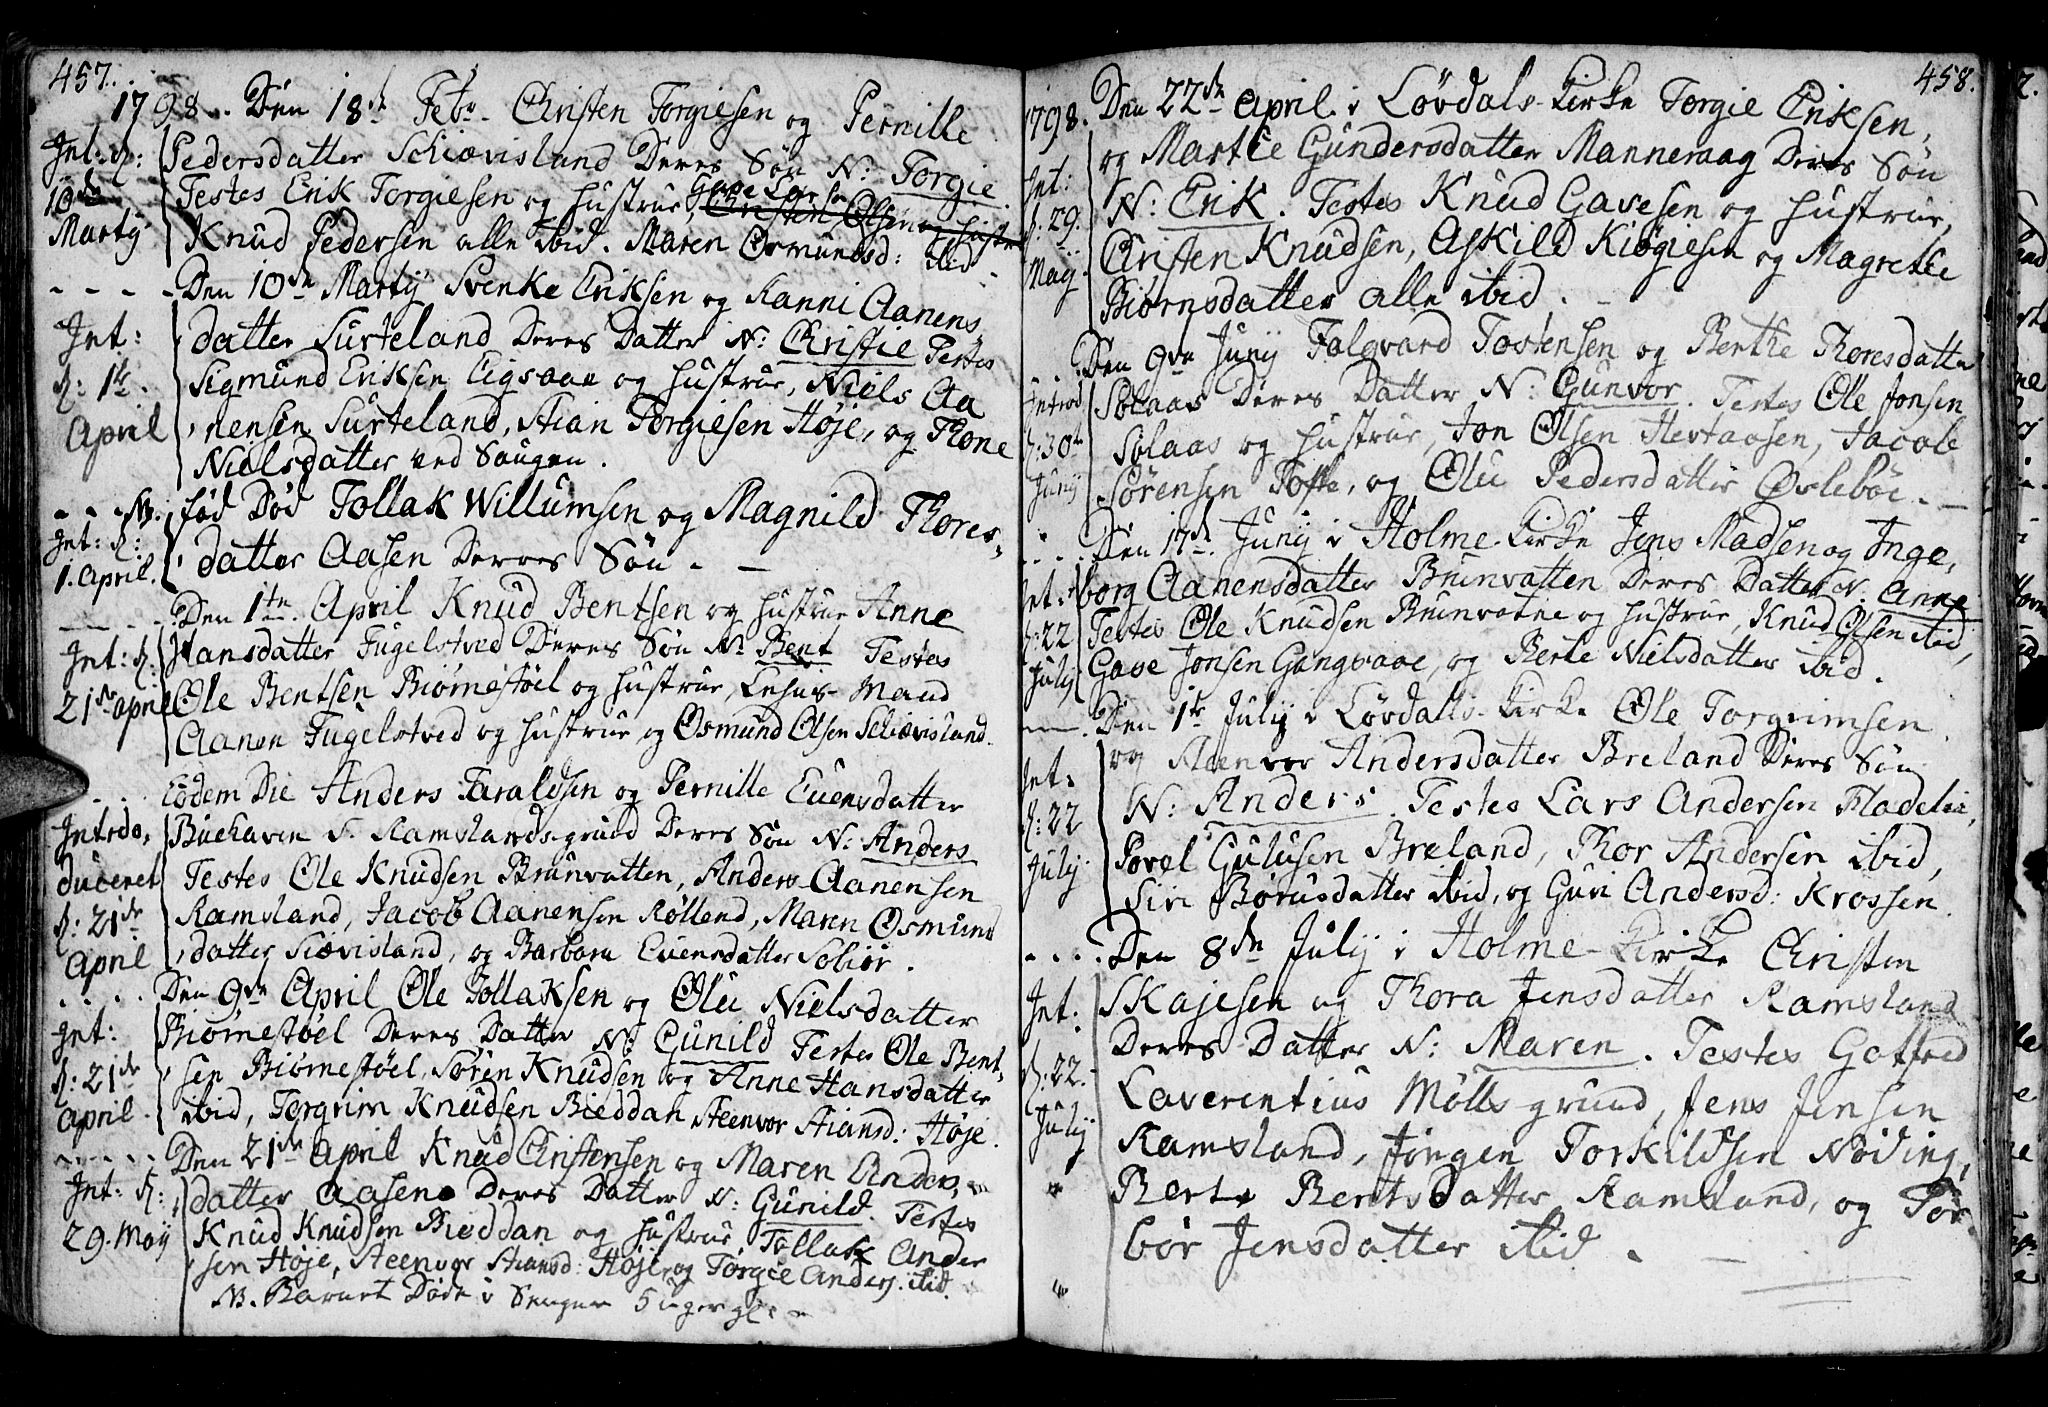 457.
1798. Den 18de Febr. Christen Torgiesen og Pernille
Int: d: Pedersdatter Schiævisland Deres Søn N: Torgie
10de Testes Erik Torgiesen og Hustrue, Christen Olsen og Hustrue
Marty Knud Pedersen alle ibid. Maren Osmundsd: ibid
Den 10de Marty Svenke Eriksen og Ranni Aanens
Int: datter Surteland Deres Datter N: Christie Testes
d: 1te Sigmund Eriksen Eigsaae og Hustrue, Niels Aa
April nensen Surteland, Stian Torgiesen Høje, og Thone
Nielsdatter ved Saugen.
NB. fød Død Tollak Willumsen og Magnild Thores-
Int: d:
1. April. datter Aasen Deres Søn.
Den 1te April Knud Bentsen og Hustrue Anne
Int: d: Hansdatter Fugelstved Deres Søn N: Bent Testes
21de April Ole Bentsen Biørnestøel og Hustrue, Lehns-Mand
Aanen Fugelstved og Hustrue og Osmund Olsen Schiævisland.
Eodem Die Anders Taraldsen og Pernille Evensdatter
Intro- Buehaven S. Ramslands-grund Deres Søn N: Anders
duceret Testes Ole Knudsen Brunvatten, Anders Aanensen
d: 21de Ramsland, Jacob Aanensen Røllend, Maren Osmunds
April datter Siævisland, og Barbara Evensdatter Soliør.
Den 9de April Ole Tollaksen og Olu Nielsdatter
Int: Biørnestøel Deres Datter N: Gunild Testes Ole Bent-
d: 21de sen Biørnestøel, Søren Knudsen og Anne Hansdatter
April ibid, Torgrim Knudsen Bieddan Steenvor Stiansd: Høje.
Den 21de April Knud Christensen og Maren Anders-
Int: d: datter Aasene Deres Datter N: Gunild. Testes
29. May Knud Knudsen Bieddan og Hustrue, Tollak Ander
sen Høje, Steenvor Stiansd: Høje, og Torgie Anders. ibid.
NB. Barnet Døde i Sengen 5 uger gl.
458.
1798. Den 22de April i Løvdals-Kirke Torgie Eriksen,
og Marthe Gundersdatter Manneraag Deres Søn
Int: N: Erik. Testes Knud Gavesen og Hustrue,
d: 29. Christen Knudsen, Askild Kiøgiesen og Magrethe
May Biørnsdatter alle ibid.
Den 9de Juny Folqvard Tostensen og Berthe Thoresdatter
Introd Solaas Deres Datter N: Gunvor. Testes Ole Jonsen
d: 30te Solaas og Hustrue, Jon Olsen Hertaasen, Jacob
Juny Sørensen Tofte, og Olu Pedersdatter Øvlebøe.
Den 17de Juny i Holme-Kirke Jens Madsen og Inge-
Int: borg Aanensdatter Brunvatten Deres Datter N. Anne
d: 22 Testes Ole Knudsen Brunvatne og Hustrue, Knud Olsen ibid,
July Gave Jonsen Gangsaae, og Berte Nielsdatter ibid.
Den 1te July i Løvdals-Kirke Ole Torgrimsen
og Steenvor Andersdatter Breland Deres Søn
Int: N: Anders. Testes Lars Andersen Fladelii,
d: 22 Povel Gulusen Breland, Thor Andersen ibid,
July Siri Børusdatter ibid, og Guri Andersd: Krossen.
Den 8de July i Holme-Kirke Christen
Int: Skajesen og Thora Jensdatter Ramsland
Deres Datter N: Maren. Testes Gotfred
d: 22. Laverentius Mølls grund, Jens Jensen
July Ramsland, Jørgen Torkildsen Nøding,
Berte Bentsdatter Ramsland, og Tor-
bør Jensdatter ibid.